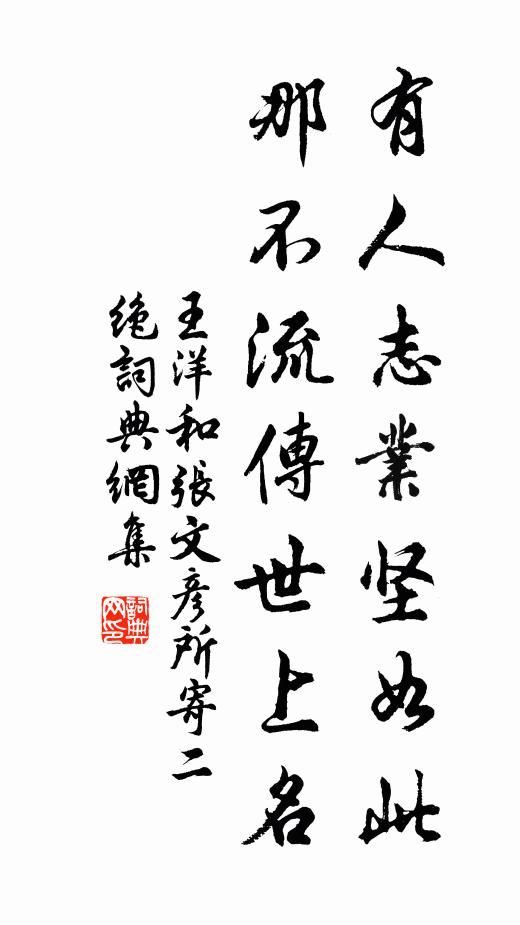 有人志業坚如此
那不流傳世上名
王洋和張文彦所寄二
绝詞典網集
詞典
网印